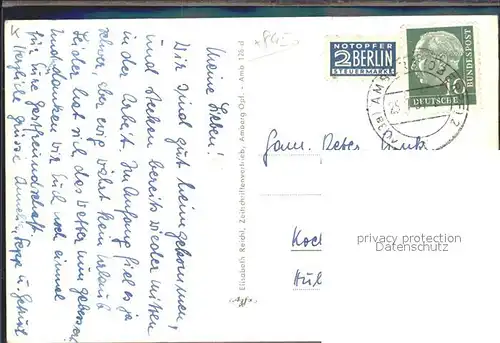 Meine Lieben!
Wir sind gut heimgekommen,
und stecken bereits wieder mitten
in der Arbeit. Im Anfang fiel es ja
schwer, aber ewig währt kein Urlaub
Leider hat sich das Wetter nun gebessert.
Und danken wir Euch noch einmal
für Eure Gastfreundschaft
Herzliche Grüsse Annelie, Sepp u.
Elisabeth Reichl, Zeitschriftenvertrieb, Amberg Opf. - Amb 135 d
NOTOPFER
2 BERLIN
STEUERMARKE
10
DEUTSCHE
BUNDESPOST
Fam. Peter
privacy protection
Datenschutz